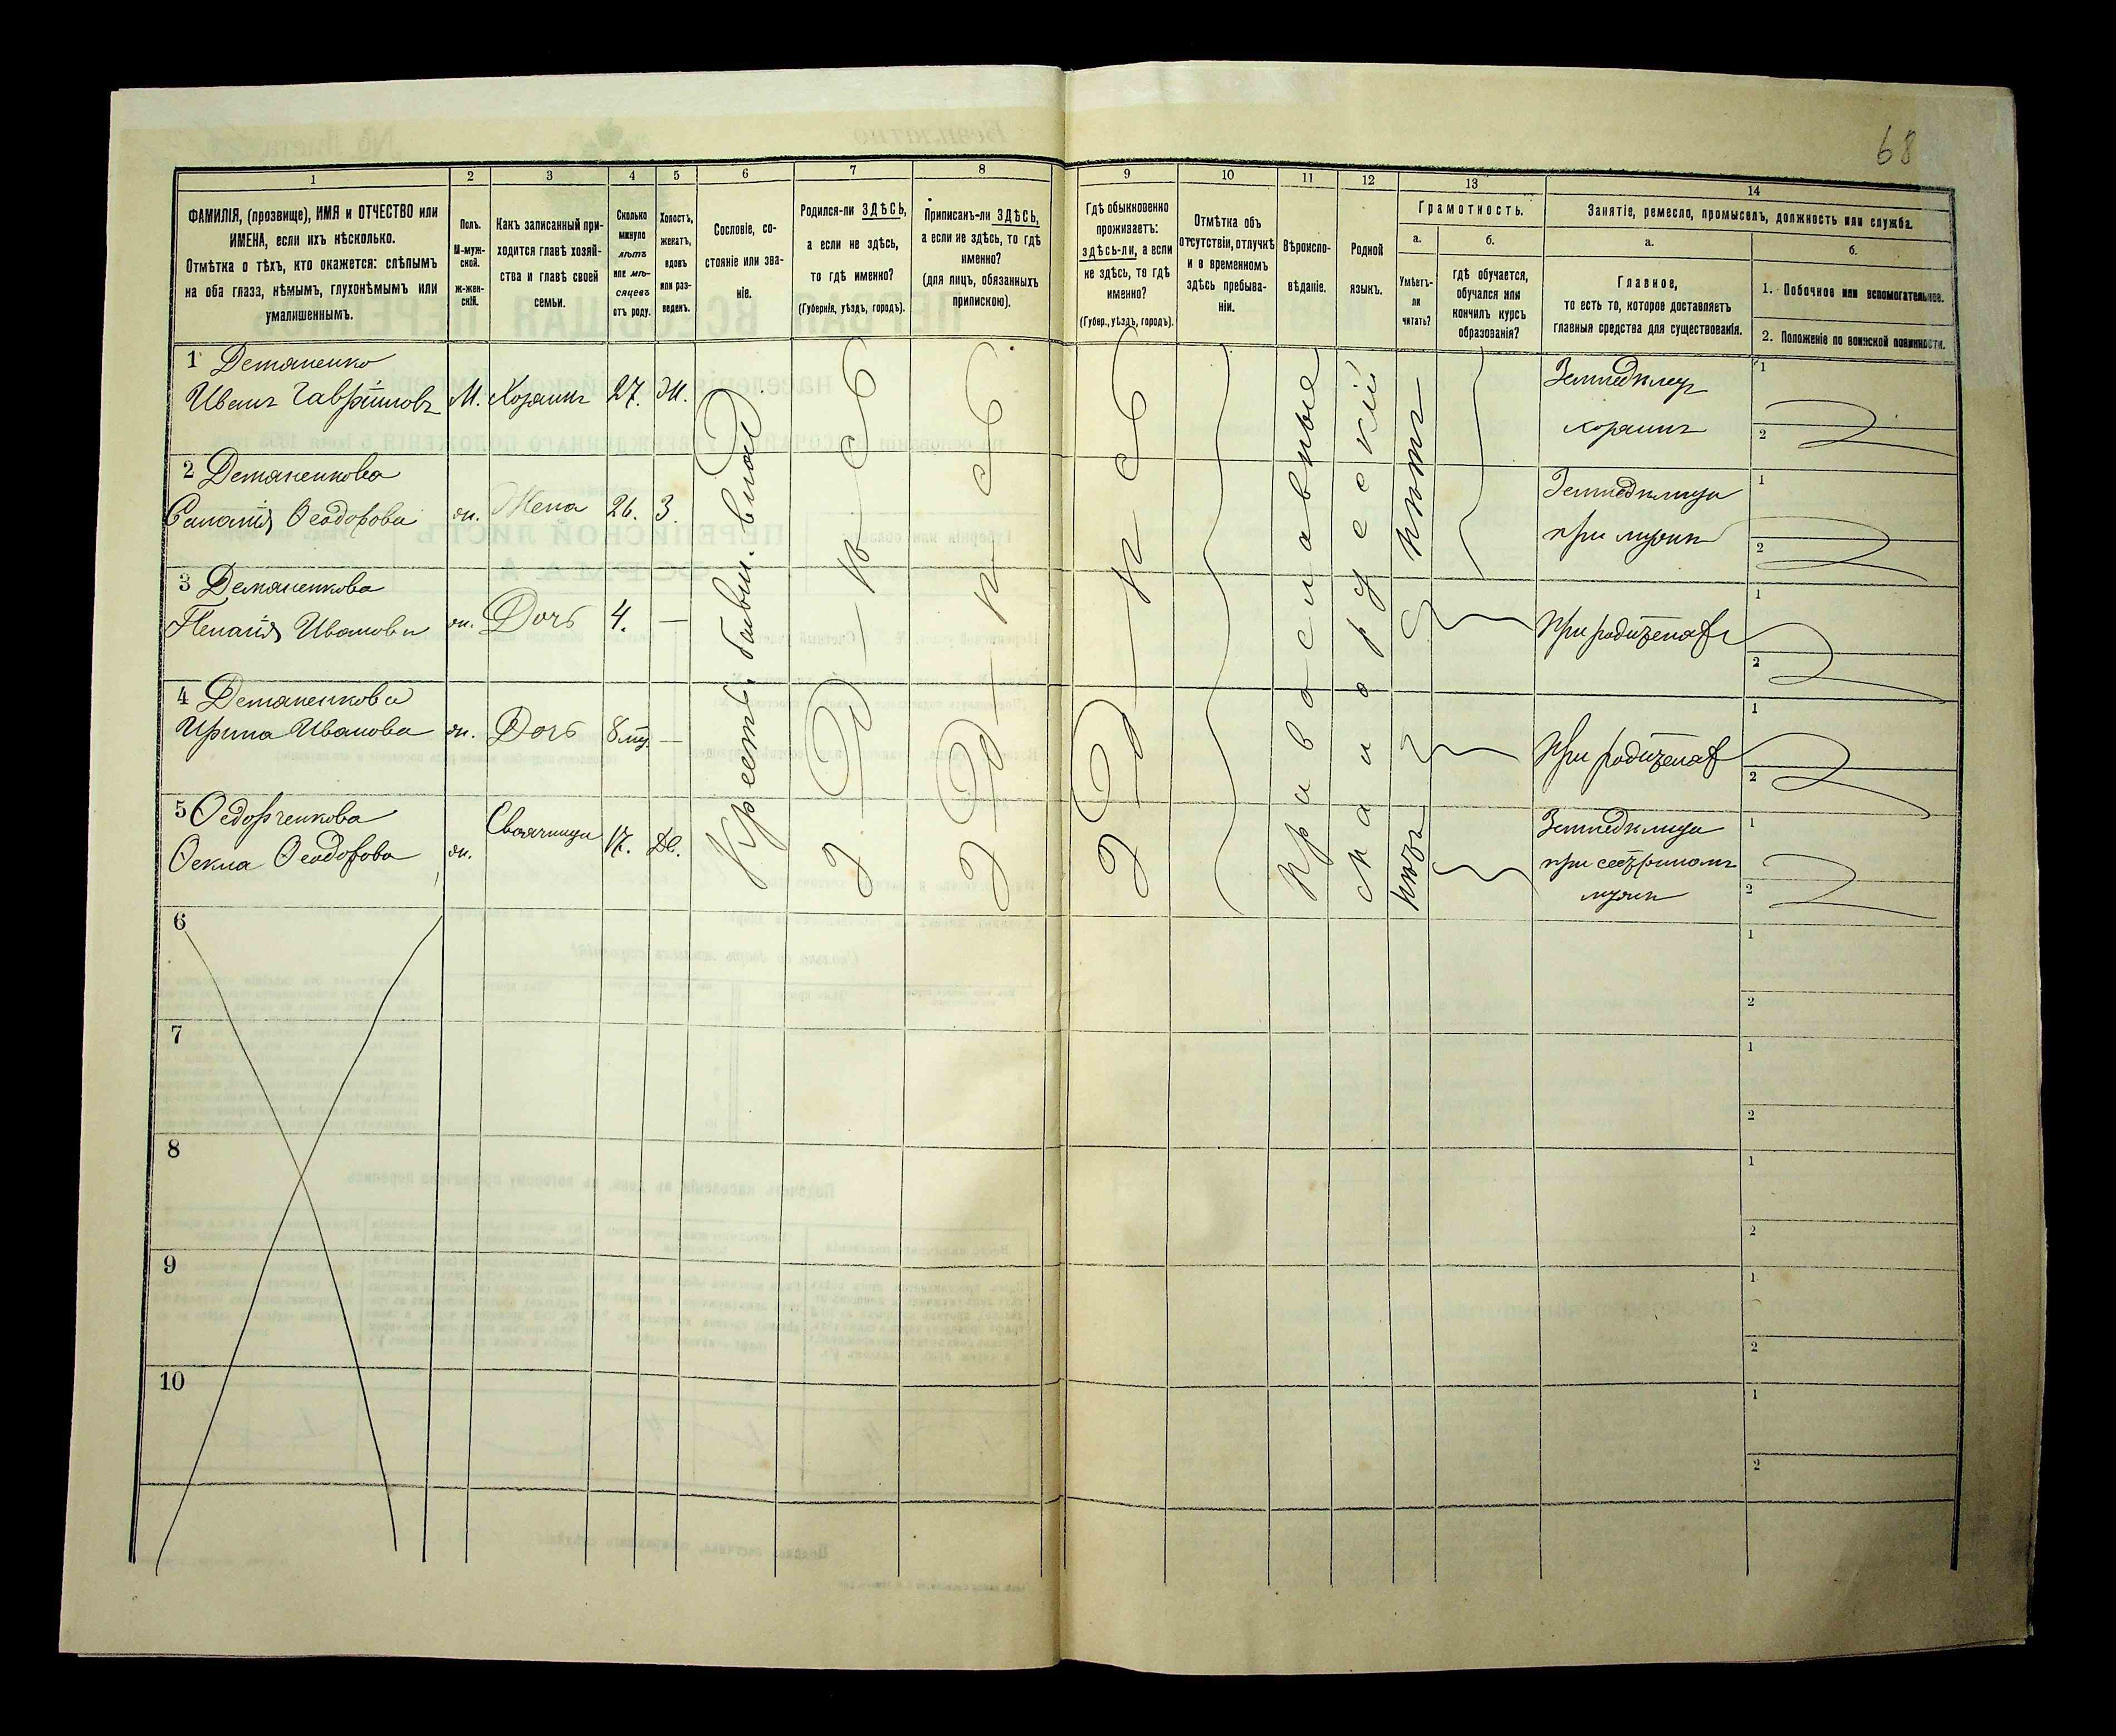 68
1 2 3 4 5 6 7 8 9 10 11 12 13 14
ФАМИЛІЯ, (прозвище), ИМЯ и ОТЧЕСТВО или
ИМЕНА, если ихъ нѣсколько.
Отмѣтка о тѣхъ, кто окажется: слѣпымъ
на оба глаза, нѣмымъ, глухонѣмымъ или
умалишеннымъ.
Полъ.
М-муж-
ской.
ж-жен-
скій.
Какъ записанный при-
ходится главѣ хозяй-
ства и главѣ своей
семьи.
Сколько
минуло
лѣтъ
или мѣ-
сяцевъ
отъ роду.
Холостъ,
женатъ,
вдовъ
или раз-
веденъ.
Сословіе, со-
стояніе или зва-
ніе.
Родился-ли ЗДѢСЬ,
а если не здѣсь,
то гдѣ именно?
(Губернія, уѣздъ, городъ).
Приписанъ-ли ЗДѢСЬ,
а если не здѣсь, то гдѣ
именно?
(для лицъ, обязанныхъ
припискою).
Гдѣ обыкновенно
проживаетъ:
здѣсь-ли, а если
не здѣсь, то гдѣ
именно?
(Губер., уѣздъ, городъ).
Отмѣтка объ
отсутствіи, отлучкѣ
и о временномъ
здѣсь пребыва-
ніи.
Вѣроиспо-
вѣданіе.
Родной
языкъ.
Грамотность.
а.
Умѣетъ-
ли
читать?
б.
гдѣ обучается,
обучался или
кончилъ курсъ
образованія?
Занятіе, ремесло, промыселъ, должность или служба.
а.
Главное,
то есть то, которое доставляетъ
главныя средства для существованія.
б.
1. Побочное или вспомогательное.
2. Положеніе по воинской повинности.
1 Демяненко
Иванъ Гавріиловъ М. Хозяинъ 27. Ж.
Земледѣлецъ
хозяинъ
1
2
2 Демяненкова
Саломія Ѳеодорова ж. Жена 26. З.
Земледѣлица
при мужѣ
1
2
3 Демяненкова
Пелагія Иванова ж. Дочь 4. —
При родителяхъ
1
2
4 Демяненкова
Ирина Иванова ж. Дочь 8 мц. —
При родителяхъ
1
2
5 Ѳедорченкова
Ѳекла Ѳеодорова ж. Своячница 17. Дѣ.
Земледѣлица
при сестриномъ
мужѣ
1
2
Крестъ. бывш. влад
З-Д-Ѣ-С-Ь
З-Д-Ѣ-С-Ь
З-Д-Ѣ-С-Ь
Православные
Малорусскій
нѣтъ
нѣтъ
6
1
2
7
1
2
8
1
2
9
1
2
10
1
2